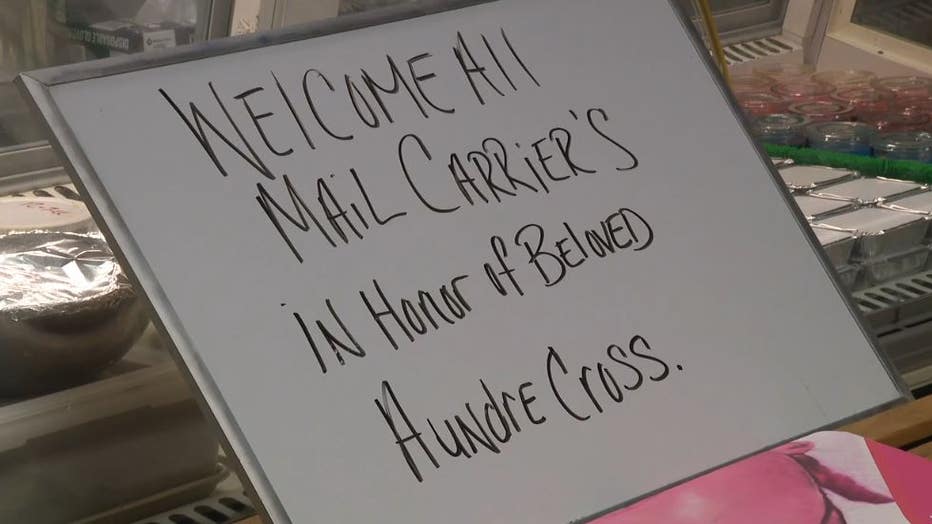 WElCOME All
MAiL CARRiER'S
iN Honor of BELOVED
AUNDRE CROSS.